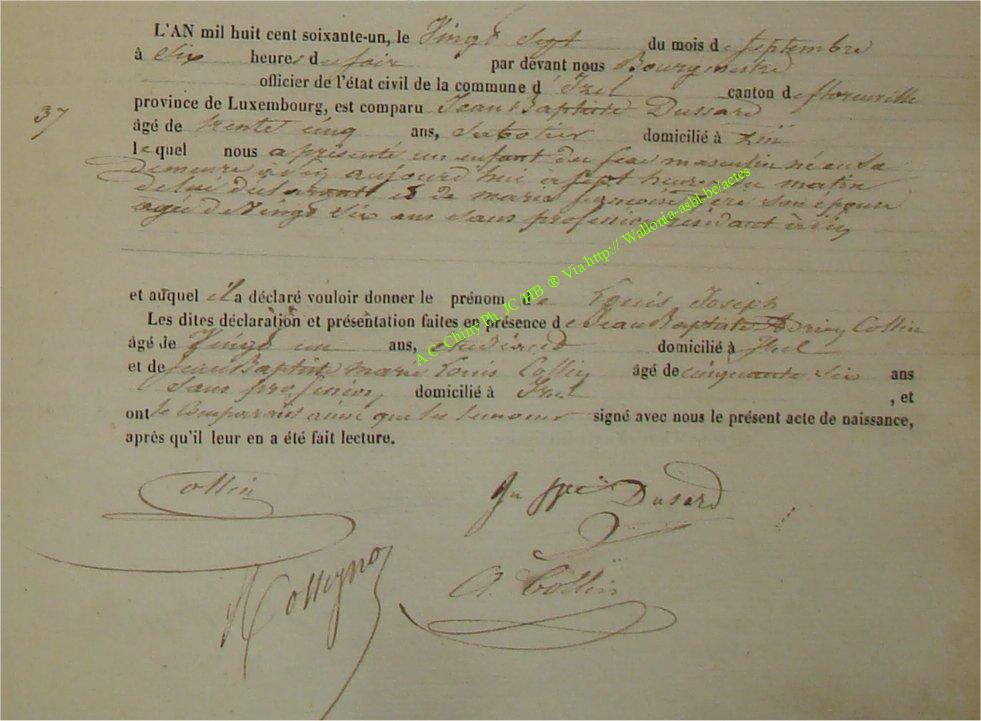 L'AN mil huit cent soixante-un, le Vingt Sept du mois de septembre
à Six heures du soir par devant nous Bourgmestre
officier de l'état civil de la commune d'Izel canton de florenville
37
province de Luxembourg, est comparu Jean Baptiste Dussard
âgé de trente cinq ans, Sabotier domicilié à
lequel nous a présenté un enfant du sexe masculin né en sa
demeure aujourd'hui à sept heures du matin
de lui déclarant & de marie françoise son épouse
agée de Vingt Six ans sans profession résidant à
et auquel il a déclaré vouloir donner le prénom de Louis Joseph
Les dites déclaration et présentation faites en présence de Jean Baptiste Collin
âgé de Vingt un ans, étudiant domicilié à Izel
et de jean Baptiste marie Louis Collin âgé de cinquante six ans
Sans profession domicilié à Izel , et
ont le comparant ainsi que les temoins signé avec nous le présent acte de naissance,
après qu'il leur en a été fait lecture.
Collin
Dusard
A. Collin
A.C. Chiny Ph. JC HB ® Via http:// Wallonia-asbl.be/actes